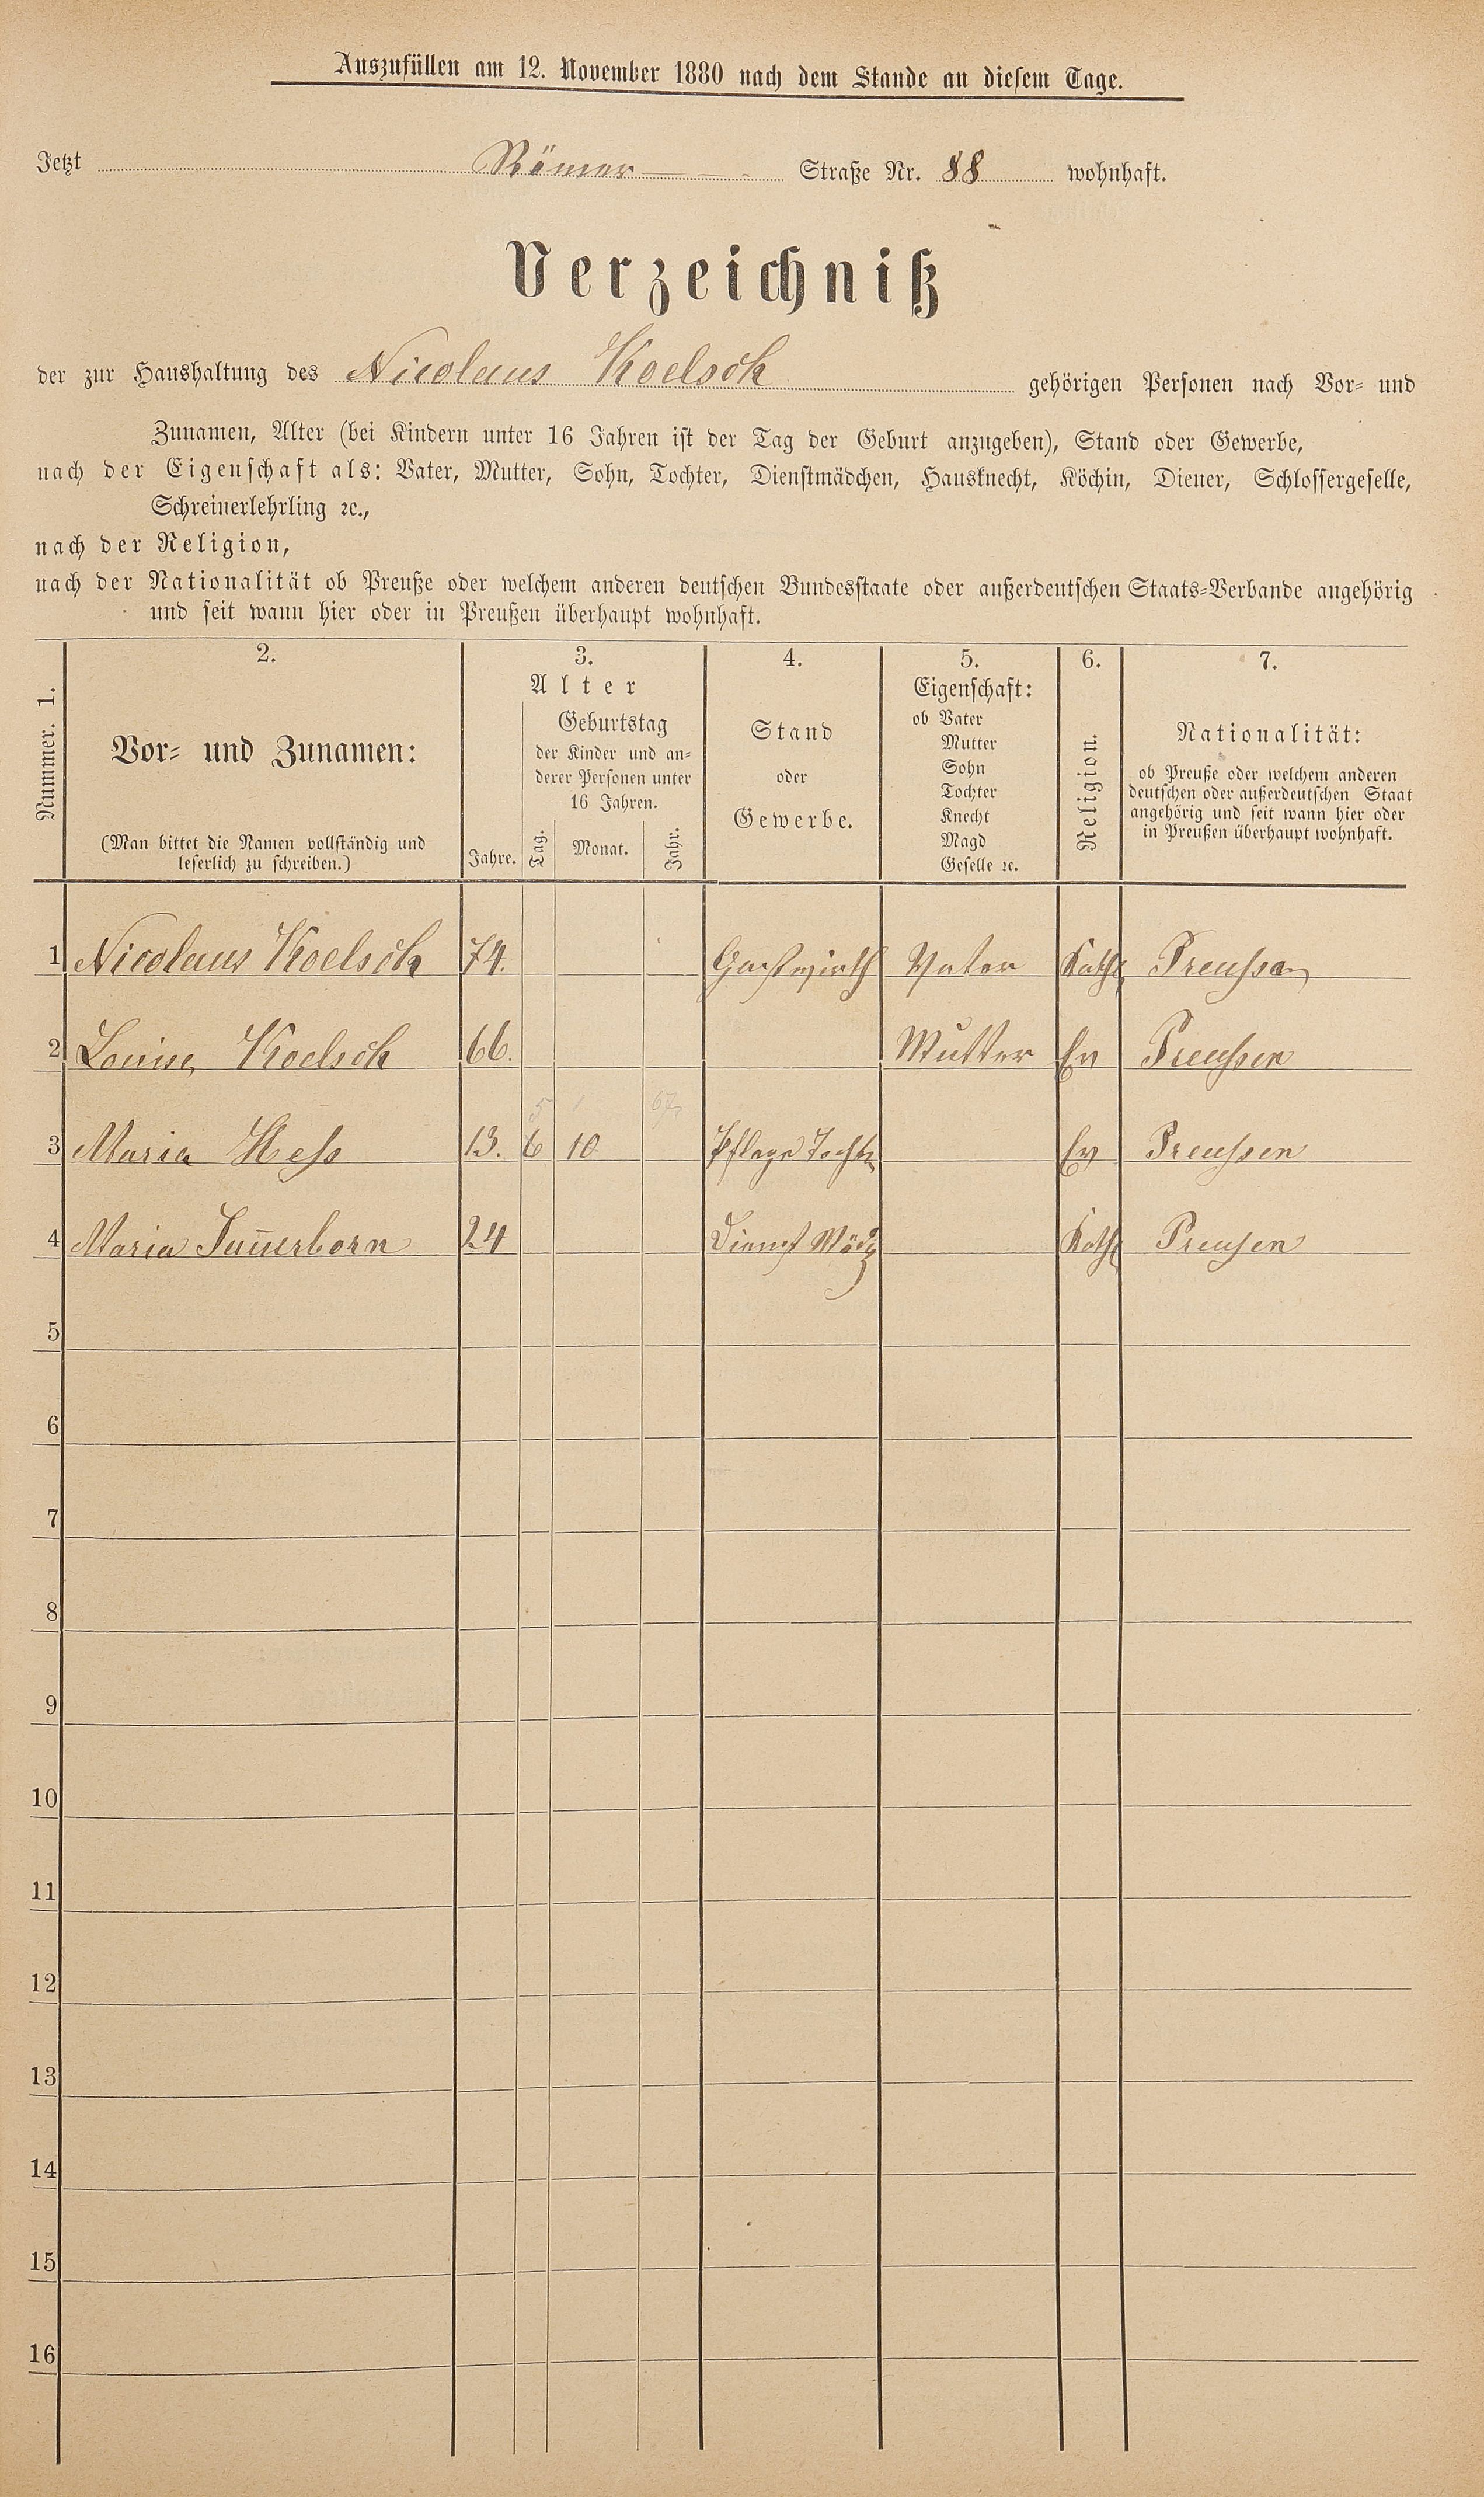 Auszufüllen am 12. November 1880 nach dem Stande an diesem Tage.
Jetzt Römer Straße Nr. 88 wohnhaft.
Verzeichniß
der zur Haushaltung des Nicolaus Koelsch gehörigen Personen nach Vor- und
Zunamen, Alter (bei Kindern unter 16 Jahren ist der Tag der Geburt anzugeben), Stand oder Gewerbe,
nach der Eigenschaft als: Vater, Mutter, Sohn, Tochter, Dienstmädchen, Hausknecht, Köchin, Diener, Schlossergeselle,
Schreinerlehrling ꝛc.,
nach der Religion,
nach der Nationalität ob Preuße oder welchem anderen deutschen Bundesstaate oder außerdeutschen Staats-Verbande angehörig
und seit wann hier oder in Preußen überhaupt wohnhaft.
Nummer. 1.
2.
Vor- und Zunamen:
(Man bittet die Namen vollständig und
leserlich zu schreiben.)
3.
Alter
Jahre.
Geburtstag
der Kinder und an-
derer Personen unter
16 Jahren.
Tag. Monat. Jahr.
4.
Stand
oder
Gewerbe.
5.
Eigenschaft:
ob Vater
Mutter
Sohn
Tochter
Knecht
Magd
Geselle ꝛc.
6.
Religion.
7.
Nationalität:
ob Preuße oder welchem anderen
deutschen oder außerdeutschen Staat
angehörig und seit wann hier oder
in Preußen überhaupt wohnhaft.
1 Nicolaus Koelsch 74. Gastwirth Vater Kath Preussen
2 Louise Koelsch 66. Mutter Ev Preussen
5 67
3 Maria Hess 13. 6 10 Pflege Tochter Ev Preussen
4 Maria 24 Dienst Kath Preusen
5
6
7
8
9
10
11
12
13
14
15
16